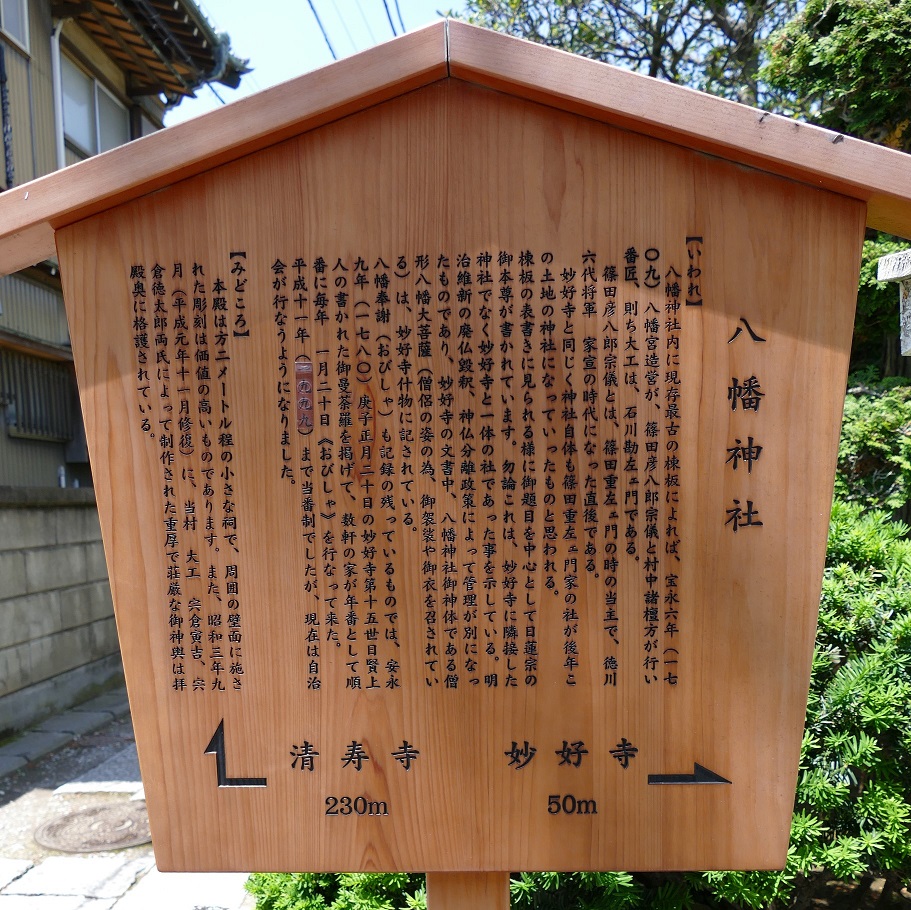 八幡神社
【いわれ】
八幡神社内に現存最古の棟板によれば、宝永六年（一七
〇九）八幡宮造営が、篠田彦八郎宗儀と村中諸檀方が行い
番匠、則ち大工は、石川勘左ェ門である。
篠田彦八郎宗儀とは、篠田重左ェ門の時の当主で、徳川
六代将軍　家宣の時代になった直後である。
妙好寺と同じく神社自体も篠田重左ェ門家の社が後年こ
の土地の神社になっていったものと思われる。
棟板の表書きに見られる様に御題目を中心として日蓮宗の
御本尊が書かれています。勿論これは、妙好寺に隣接した
神社でなく妙好寺と一体の社であった事を示している。明
治維新の廃仏毀釈、神仏分離政策によって管理が別になっ
たものであり、妙好寺の文書中、八幡神社御神体である僧
形八幡大菩薩（僧侶の姿の為、御袈裟や御衣を召されてい
る）は、妙好寺什物に記されている。
八幡奉謝（おびしゃ）も記録の残っているものでは、安永
九年（一七八〇）庚子正月二十日の妙好寺第十五世日賢上
人の書かれた御曼荼羅を掲げて、数軒の家が年番として順
番に毎年　一月二十日《おびしゃ》を行なって来た。
平成十一年（一九九九）まで当番制でしたが、現在は自治
会が行なうようになりました。
【みどころ】
本殿は方二メートル程の小さな祠で、周囲の壁面に施さ
れた彫刻は価値の高いものであります。また、昭和三年九
月（平成元年十一月修復）に、当村　大工　宍倉寅吉、宍
倉徳太郎両氏によって制作された重厚で荘厳な御神輿は拝
殿奥に格護されている。
妙好寺
50m
清寿寺
230m